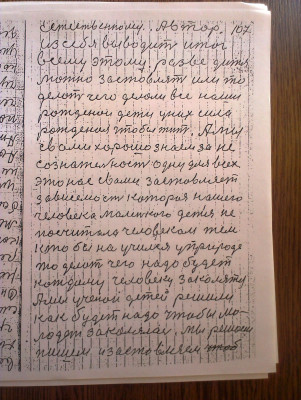 естественному. Автор. 167.
из себя выводит итог
всему этому, разве детей
можно заставлять или то
делат чего делали все наши
рождение дети у них сила
рождения чтобы жит. А мы
с вами хорошо знаем за не
сознательност одну для всех
это нас с вами заставляет
зависемост которая нашего
человека маленкого детя не
посчитала человеком тем
кто бы на училися у природе
то делат чего надо будет
каждому человеку закаляту
А мы ученой детей решили
как будет надо чтобы мо-
лодеж закалялас. мы решили
пишем и заставляем